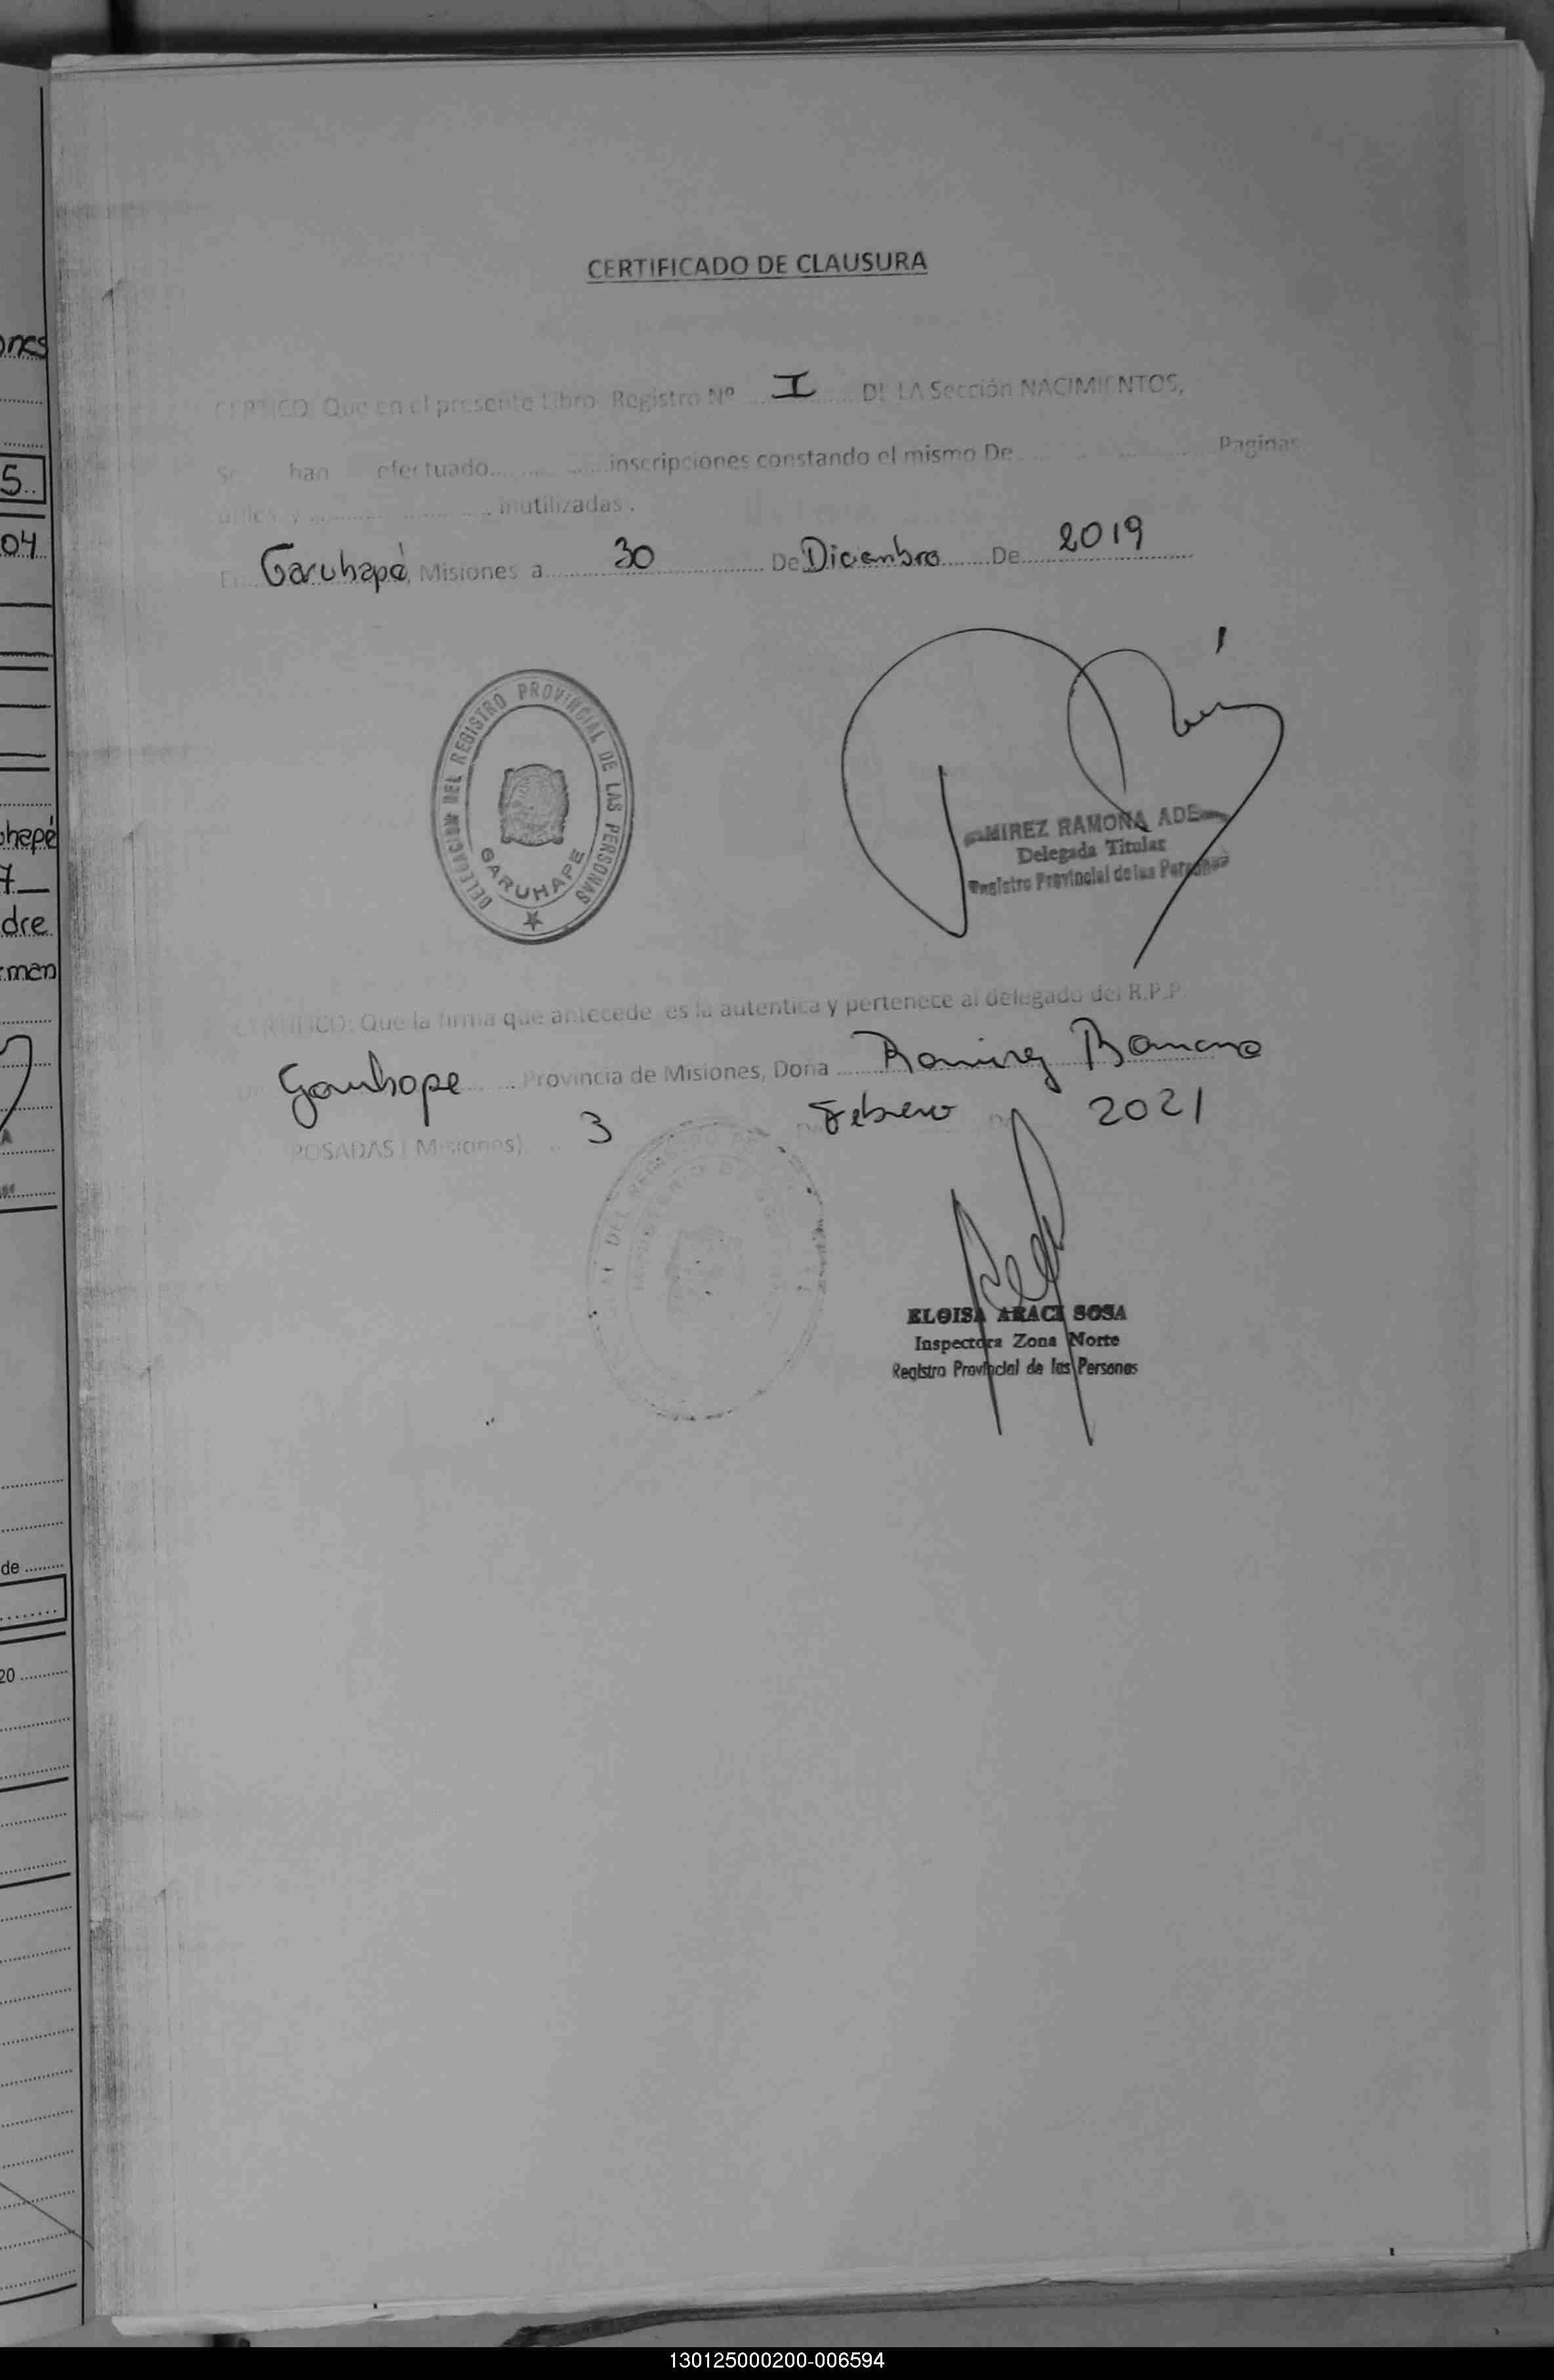 CERTIFICADO DE CLAUSURA
CERTICO: Que en el presente Libro Registro Nº I DE LA Sección NACIMIENTOS,
Se han efectuado.................inscripciones constando el mismo De................Paginas
utiles y ......................inutilizadas.
En Garuhapé, Misiones a......30......De Diciembre......De...2019
DELEGACION DEL REGISTRO PROVINCIAL DE LAS PERSONAS
GARUHAPE
MIREZ RAMONA ADE
Delegada Titular
Registro Provincial de las Personas
CERTIFICO: Que la firma que antecede es la autentica y pertenece al delegado del R.P.P.
Garuhape Provincia de Misiones, Doña Ramirez Ramona
POSADAS ( Misiones), 3 Febrero 2021
ELOISA ARACI SOSA
Inspectora Zona Norte
Registro Provincial de las Personas
ones
5..
04
hapé
7
dre
men
de
20
130125000200-006594